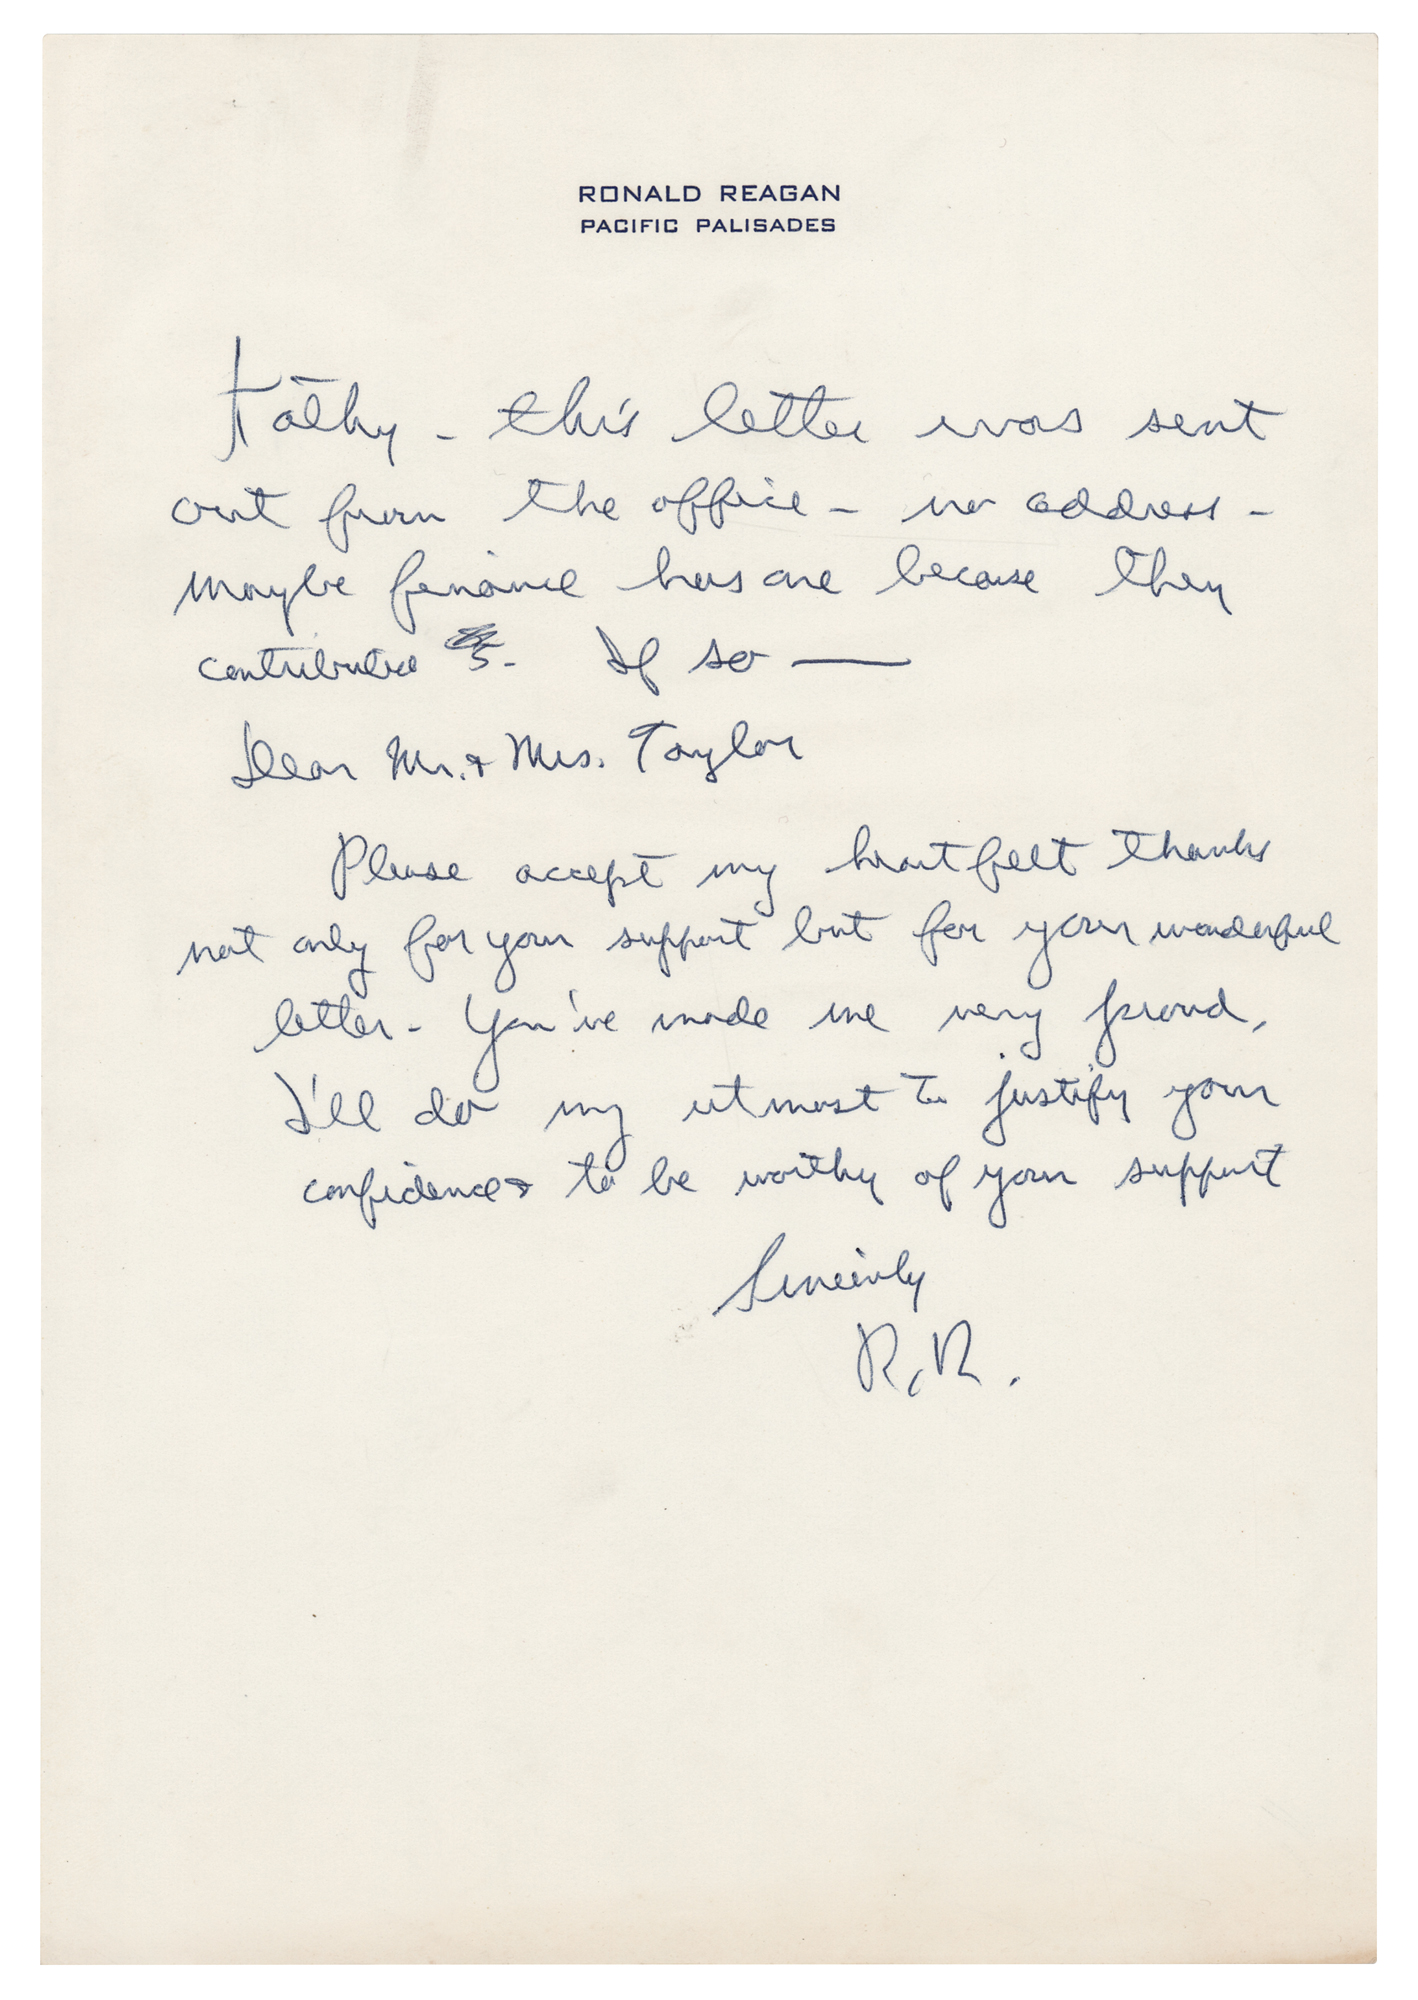 RONALD REAGAN
PACIFIC PALISADES
Kathy – this letter was sent
out from the office – no address –
maybe finance has one because they
contributed $5. If so —
Dear Mr. & Mrs. Taylor
Please accept my heartfelt thanks
not only for your support but for your wonderful
letter. You've made me very proud.
I'll do my utmost to justify your
confidence & to be worthy of your support
Sincerely
R.R.